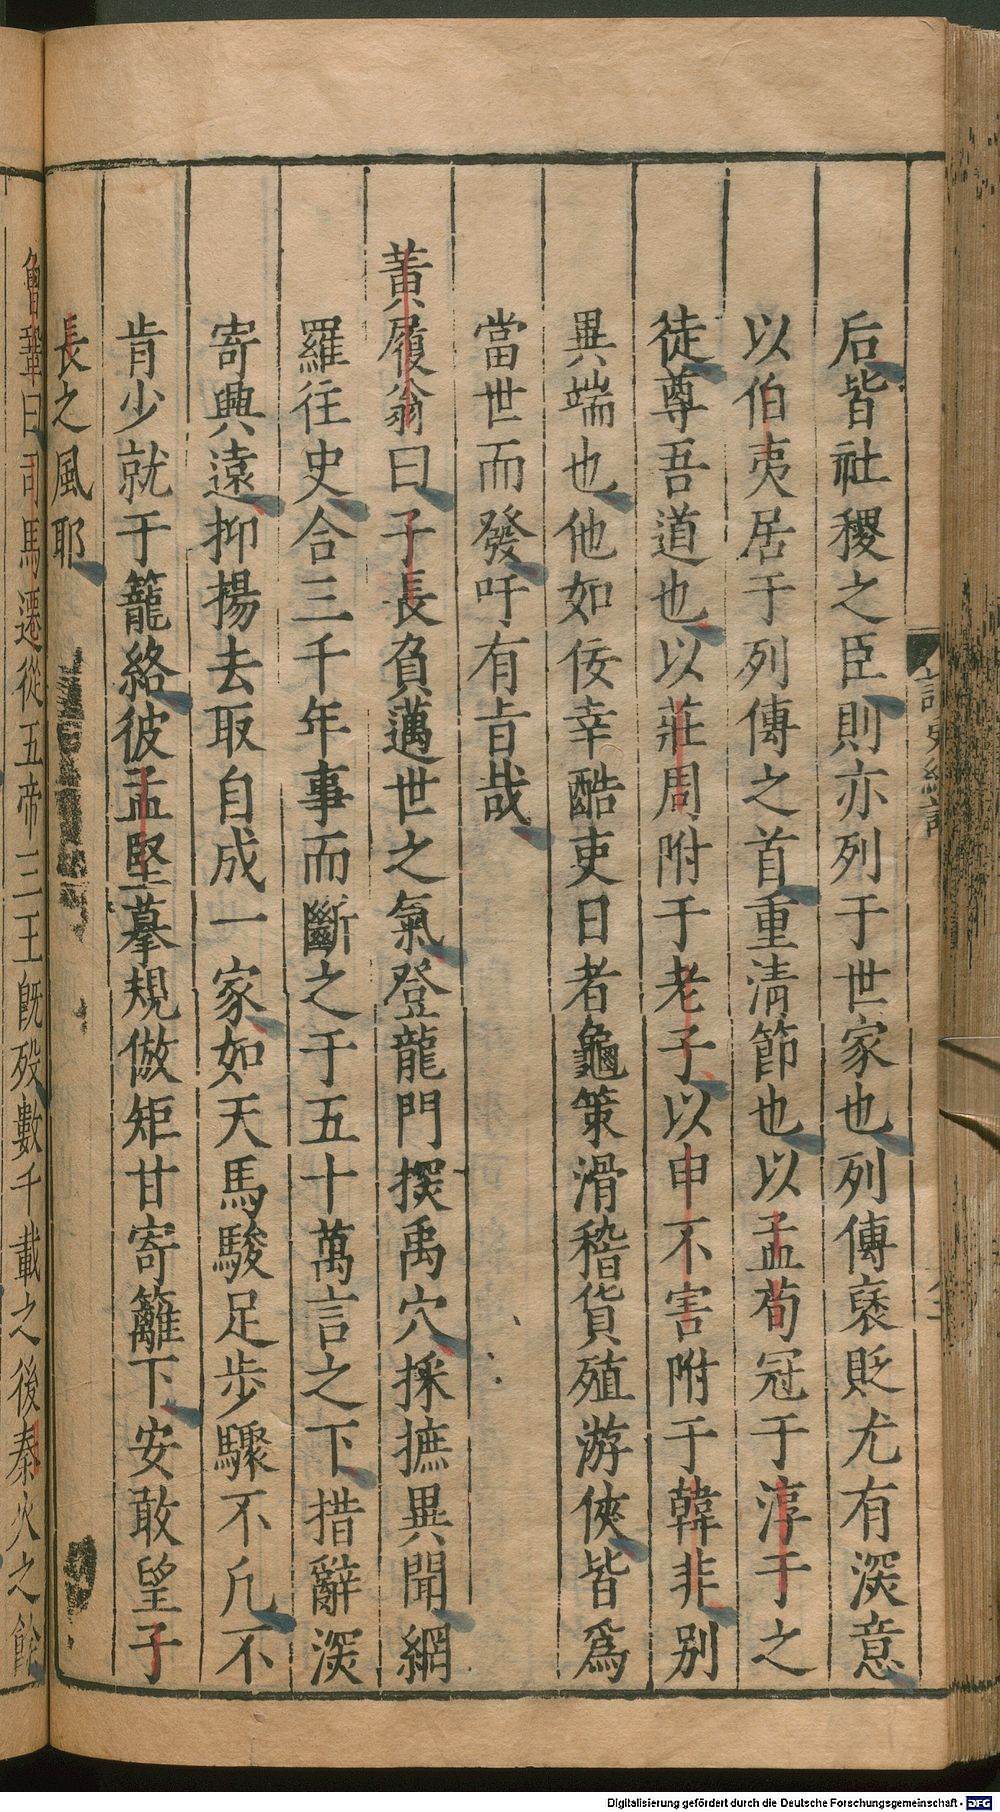 后皆社稷之臣則亦列于世家也列傳襃貶尤有深意
以伯夷居于列傳之首重清節也以孟荀冠于淳于之
徒尊吾道也以莊周附于老子以申不害附于韓非别
異端也他如佞幸酷吏日者龜策滑稽貨殖游俠皆爲
當世而發吁有旨哉
黃履翁曰子長負邁世之氣登龍門探禹穴採摭異聞網
羅往史合三千年事而斷之于五十萬言之下措辭深
寄興遠抑揚去取自成一家如天馬駿足步驟不凡不
肯少就于籠絡彼孟堅摹規倣矩甘寄籬下安敢望子
長之風耶
魯鞏曰司馬遷從五帝三王旣歿數千載之後秦火之餘
Digitalisierung gefördert durch die Deutsche Forschungsgemeinschaft - DFG